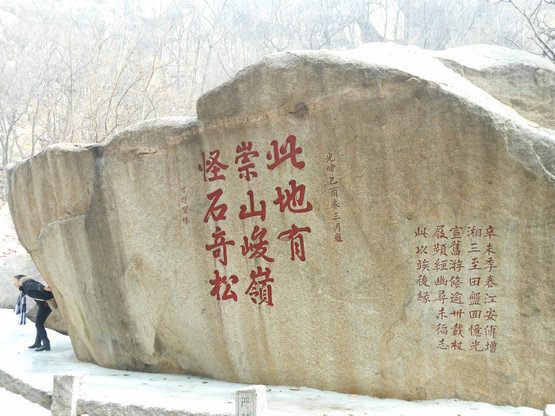 辛未季春江安傅增
湘三至田盤回憶光
宣舊游倏逾卅載杖
屐頻經幽尋未徧志
此以竢後緣
光緒乙酉三月題
此地有
崇山峻嶺
怪石奇松
严